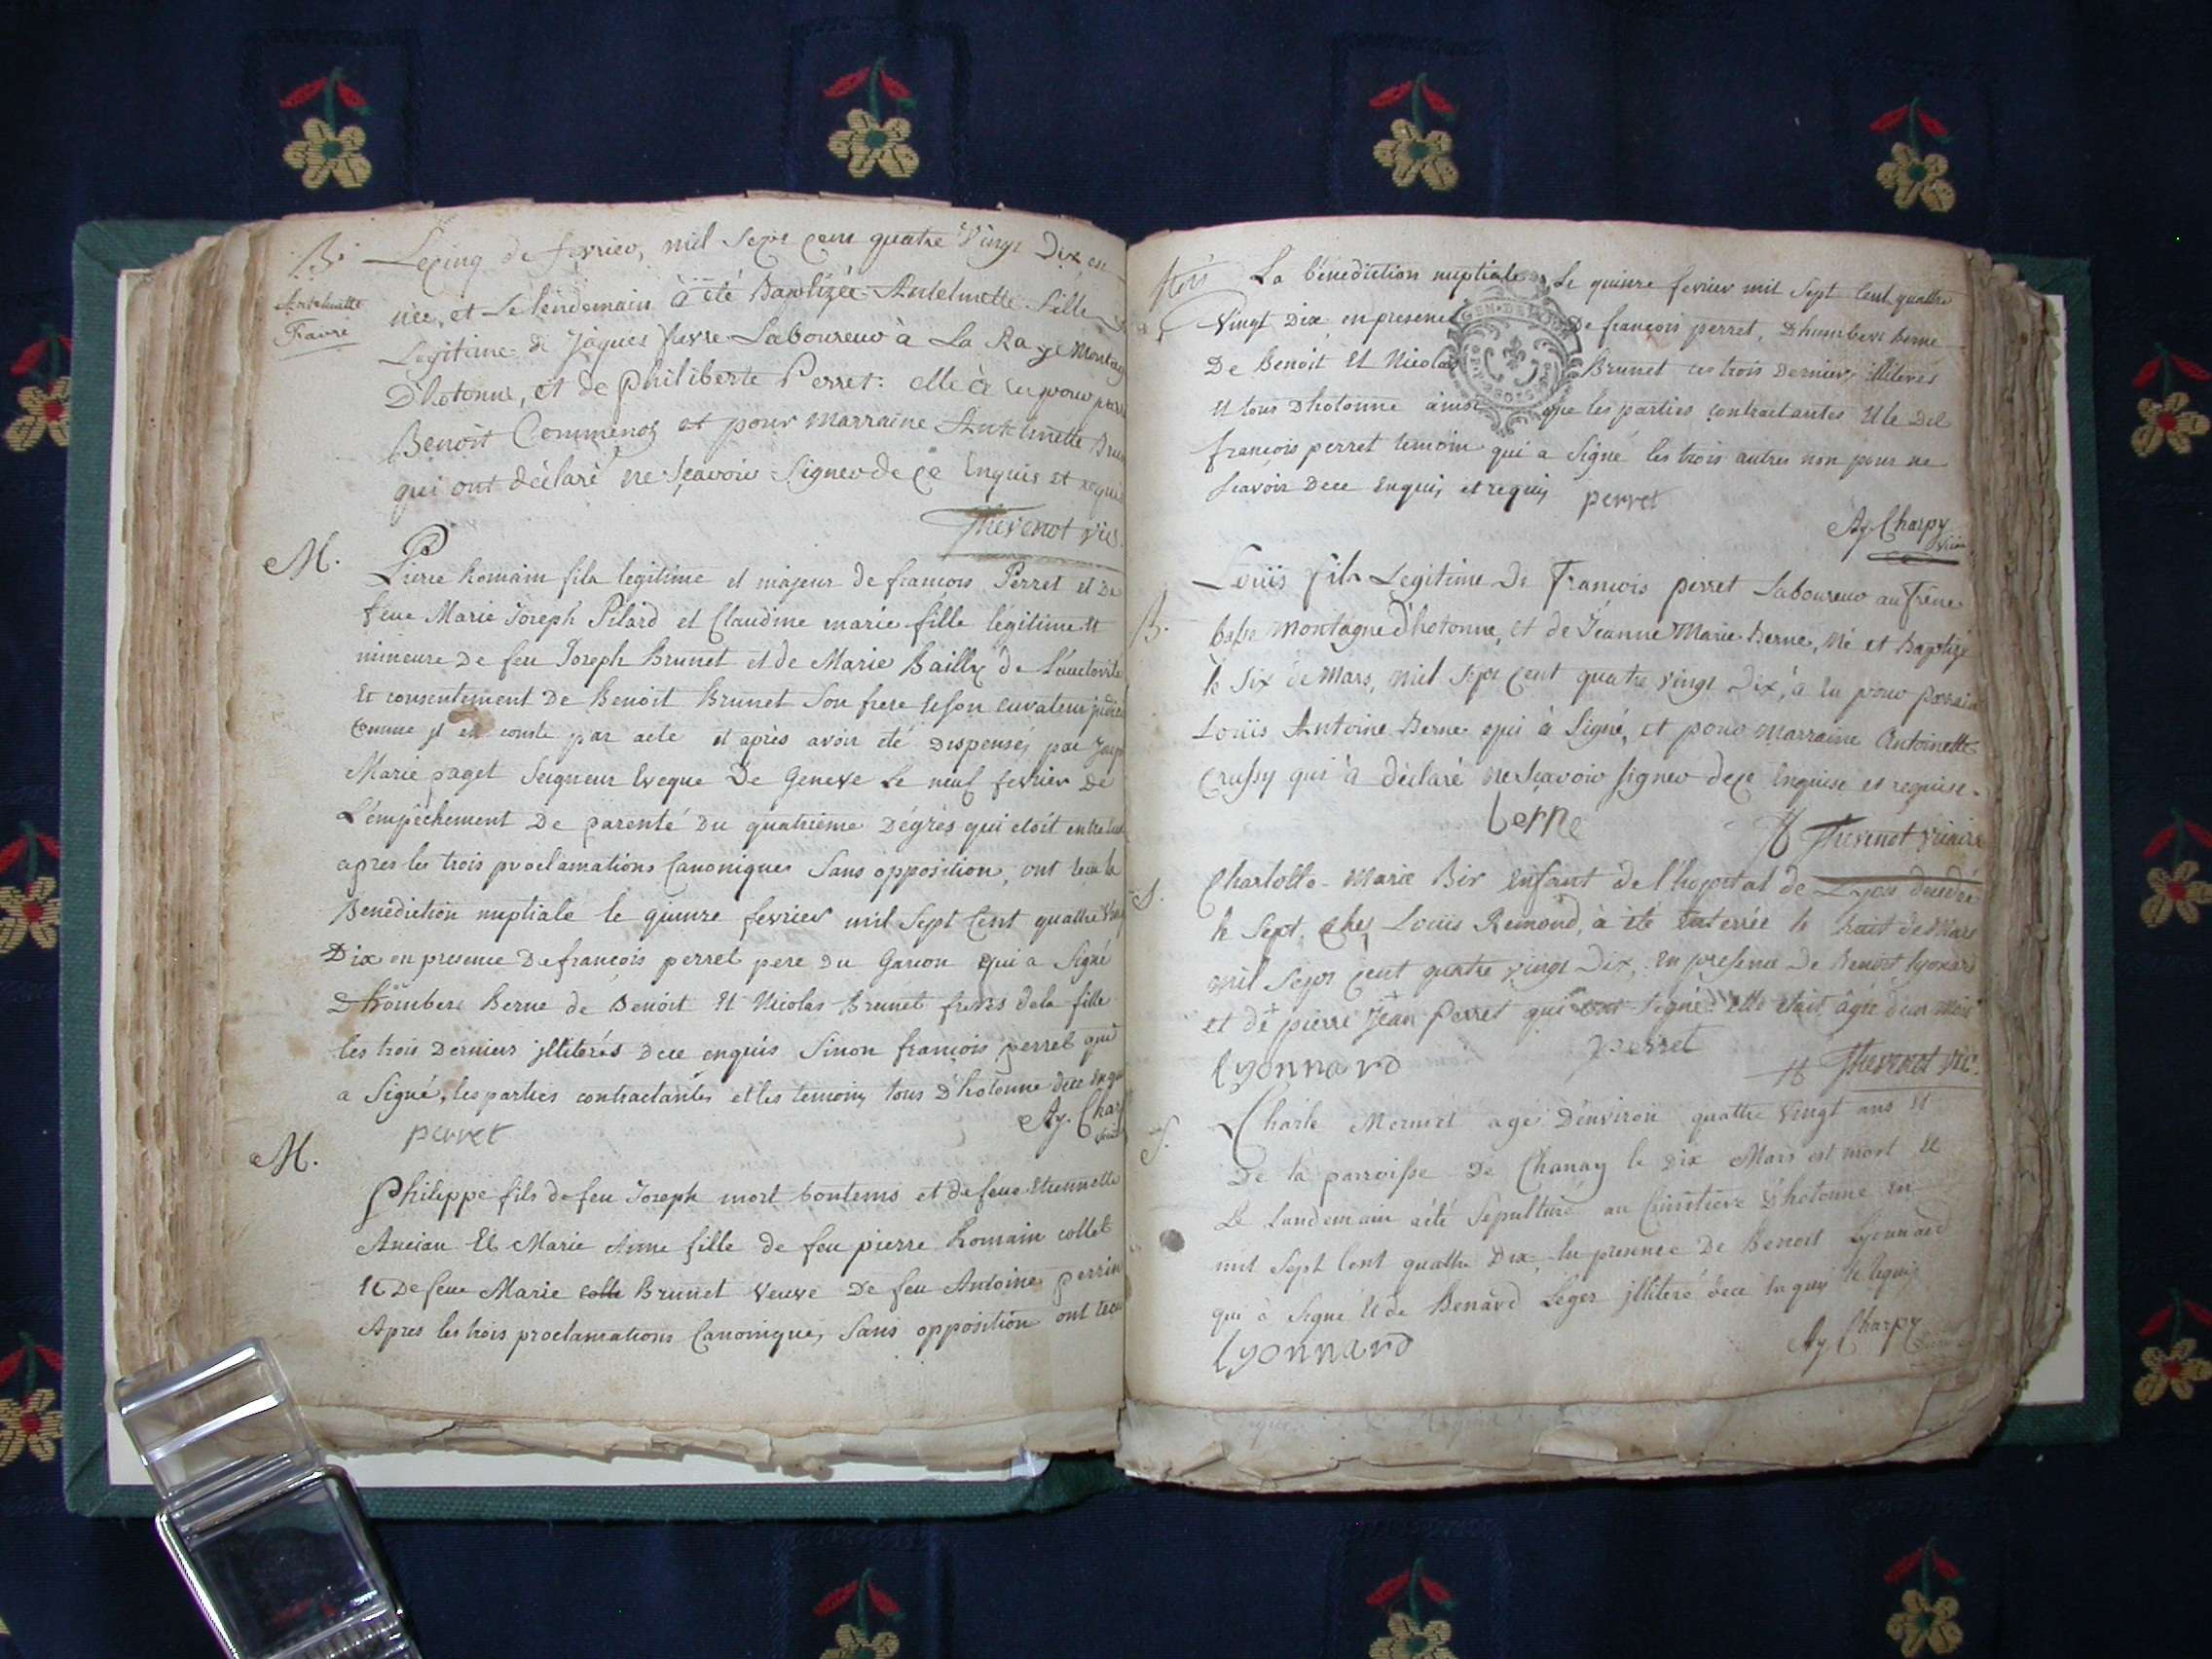 B.
Antelmette
Favre
Le cinq de fevrier, mil Sept cent quatre Vingt Dix est
née, et Le lendemain à été Baptizée Antelmette fille
Legitime de Jaques favre Laboureur à La Raye Montag
D'hotonne, et de Philiberte Perret: elle à eu pour parr
Benoit Commenoz et pour Marraine Antelmette Brun
qui ont déclaré ne Sçavoir Signer de ce Enquis et requis
Thevenot vic.
M.
Pierre Romain fils legitime et majeur de francois Perret et De
feue Marie Joseph Pilard et Claudine marie fille légitime et
mineure De feu Joseph Brunet et de Marie Bailly de L'auctorité
Et consentement De Benoit Brunet Son frere et son curateur
comme jl en conste par acte et après avoir été Dispensés par Joseph
Marie paget Seigneur Eveque De Geneve Le neuf fevrier De
L'émpêchement De parenté Du quatrième Dégrès qui etoit entre
apres les trois proclamations Canoniques Sans opposition, ont recu la
Benédiction nuptiale le quinze fevrier mil Sept Cent quattre Ving
Dix en presence De francois perret pere Du Garcon qui a Signé
D'hombert Berne de Benoit Et Nicolas Brunet freres de la fille
les trois Derniers jlliterés De ce enquis Sinon francois perret qui
a Signé, les parties contractantes et les temoins tous D'hotonne de ce
perret
Ay. Char
M.
Philippe fils de feu Joseph mort bontems et de feue Etiennette
Ancian Et Marie Anne fille de feu pierre Romain collet
Et De feue Marie Brunet Veuve De feu Antoine perrin
Apres les trois proclamations Canoniques Sans opposition ont recu
La bénediction nuptiale Le quinze fevrier mil Sept Cent quattre
Vingt Dix en presence De francois perret, D'humbert Berne
De Benoit Et Nicolas Brunet ces trois Derniers jlliterés
Et tous D'hotonne ainsi que les parties contractantes Et le Dit
francois perret temoin qui a Signé les trois autres non pour ne
scavoir De ce Enquis et requis perret
Ay. Charpy
B.
Loüis fils Legitime De François perret Laboureur au frene
basse montagne d'hotonne, et de Jeanne Marie Berne, Né et Baptizé
le Six de Mars, mil Sept Cent quatre vingt Dix, à eu pour Parrain
Loüis Antoine Berne qui à Signé, et pour Marraine Antoinette
Crussy qui à déclaré ne Sçavoir signer de ce Enquise et requise.
berne
Thevenot vicaire
S.
Charlotte-Marie Bir Enfant de l'hopital de Lyon decedée
le Sept, chez Loüis Remond, à été Enterrée le huit de Mars
mil Sept Cent quatre vingt Dix, En presence De Benoit lyonard
et de pierre Jean Perret qui ont signé elle etait âgée d'un mois
lyonnard
perret
Thevenot vic.
S.
Charle Mermet agé D'environ quattre Vingt ans et
De la parroisse De Chanay le Dix Mars est mort et
Le Landemain a été Sepulturé au Cimetiere D'hotonne
mil Sept Cent quattre Dix En presence De Benoit Lyonnard
qui à Signé Et de Benard Leger jlliteré de ce Enquis et Requis
lyonnard
Ay Charpy